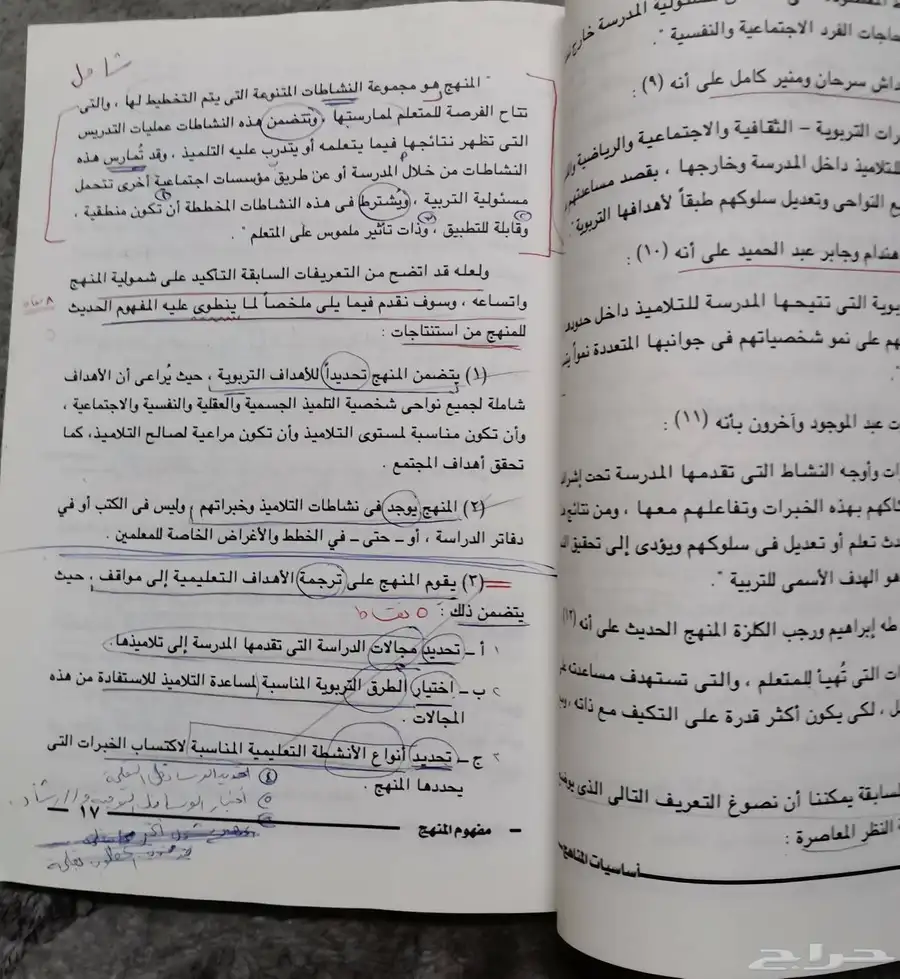 حاجات الفرد الاجتماعية والنفسية ".
داش سرحان ومنير كامل على أنه (٩) :
رات التربوية - الثقافية والاجتماعية والرياضية
للتلاميذ داخل المدرسة وخارجها ، بقصد مساعدتهم
ع النواحى وتعديل سلوكهم طبقاً لأهدافها التربوية ".
هندام وجابر عبد الحميد على أنه (١٠) :
بوية التى تتيحها المدرسة للتلاميذ داخل حدودها
هم على نمو شخصياتهم فى جوانبها المتعددة نمواً
ت عبد الموجود وآخرون بأنه (١١) :
رات وأوجه النشاط التى تقدمها المدرسة تحت
كاكهم بهذه الخبرات وتفاعلهم معها ، ومن نتائج
دث تعلم أو تعديل فى سلوكهم ويؤدى إلى تحقيق
هو الهدف الأسمى للتربية ".
طه إبراهيم ورجب الكلزة المنهج الحديث على أنه (١٢)
ات التى تُهيأ للمتعلم ، والتى تستهدف مساعدته
ل ، لكى يكون أكثر قدرة على التكيف مع ذاته ،
لسابقة يمكننا أن نصوغ التعريف التالى الذى
ة النظر المعاصرة :
أساسيات المناهج
شامل
" المنهج هو مجموعة النشاطات المتنوعة التى يتم التخطيط لها ، والتى
تتاح الفرصة للمتعلم لممارستها ، وتتضمن هذه النشاطات عمليات التدريس
التى تظهر نتائجها فيما يتعلمه أو يتدرب عليه التلميذ ، وقد تُمارس هذه
النشاطات من خلال المدرسة أو عن طريق مؤسسات اجتماعية أخرى تتحمل
مسئولية التربية ، ويُشترط فى هذه النشاطات المخططة أن تكون منطقية ،
وقابلة للتطبيق ، وذات تأثير ملموس على المتعلم " .
ولعله قد اتضح من التعريفات السابقة التأكيد على شمولية المنهج
واتساعه ، وسوف نقدم فيما يلى ملخصاً لما ينطوى عليه المفهوم الحديث
للمنهج من استنتاجات :
(١) يتضمن المنهج تحديداً للأهداف التربوية ، حيث يُراعى أن الأهداف
شاملة لجميع نواحى شخصية التلميذ الجسمية والعقلية والنفسية والاجتماعية ،
وأن تكون مناسبة لمستوى التلاميذ وأن تكون مراعية لصالح التلاميذ، كما
تحقق أهداف المجتمع .
(٢) المنهج يوجد فى نشاطات التلاميذ وخبراتهم ، وليس فى الكتب أو في
دفاتر الدراسة ، أو - حتى - في الخطط والأغراض الخاصة للمعلمين .
(٣) يقوم المنهج على ترجمة الأهداف التعليمية إلى مواقف ، حيث
يتضمن ذلك : ٥ نقاط
١ أ - تحديد مجالات الدراسة التى تقدمها المدرسة إلى تلاميذها.
٢ ب - اختيار الطرق التربوية المناسبة لمساعدة التلاميذ للاستفادة من هذه
المجالات .
٣ ج - تحديد أنواع الأنشطة التعليمية المناسبة لاكتساب الخبرات التى
يحددها المنهج .
مفهوم المنهج
١٧
حراج